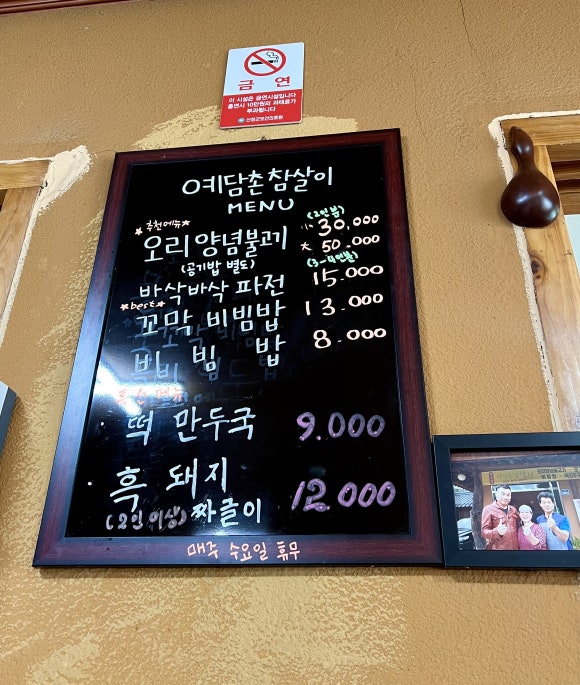 금연
이 시설은 금연시설입니다
흡연시 10만원의 과태료가
부과됩니다
산청군보건의료원
예담촌 참살이
MENU
추천메뉴
오리 양념불고기
(공기밥 별도)
(2인분)
小 30,000
大 50,000
(3~4인분)
바삭바삭 파전 15,000
best
꼬막 비빔밥 13,000
비 빔 밥 8,000
떡 만두국 9,000
흑 돼지
(2인 이상) 짜글이 12,000
매주 수요일 휴무